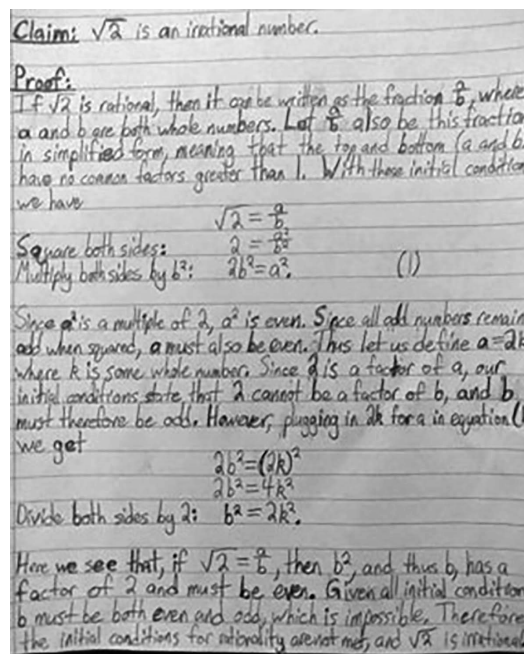 Claim: √2 is an irrational number.
Proof:
If √2 is rational, then it can be written as the fraction a/b, where
a and b are both whole numbers. Let a/b also be this fraction
in simplified form, meaning that the top and bottom (a and b
have no common factors greater than 1. With these initial condition
we have
√2 = a/b
Square both sides: 2 = a²/b²
Multiply both sides by b²: 2b² = a². (1)
Since a² is a multiple of 2, a² is even. Since all odd numbers remain
odd when squared, a must also be even. Thus let us define a=2k
where k is some whole number. Since 2 is a factor of a, our
initial conditions state that 2 cannot be a factor of b, and b
must therefore be odd. However, plugging in 2k for a in equation (
we get
2b²=(2k)²
2b²=4k²
Divide both sides by 2: b²=2k².
Here we see that, if √2 = a/b, then b², and thus b, has a
factor of 2 and must be even. Given all initial condition
b must be both even and odd, which is impossible. Therefore
the initial conditions for rationality are not met, and √2 is irrational